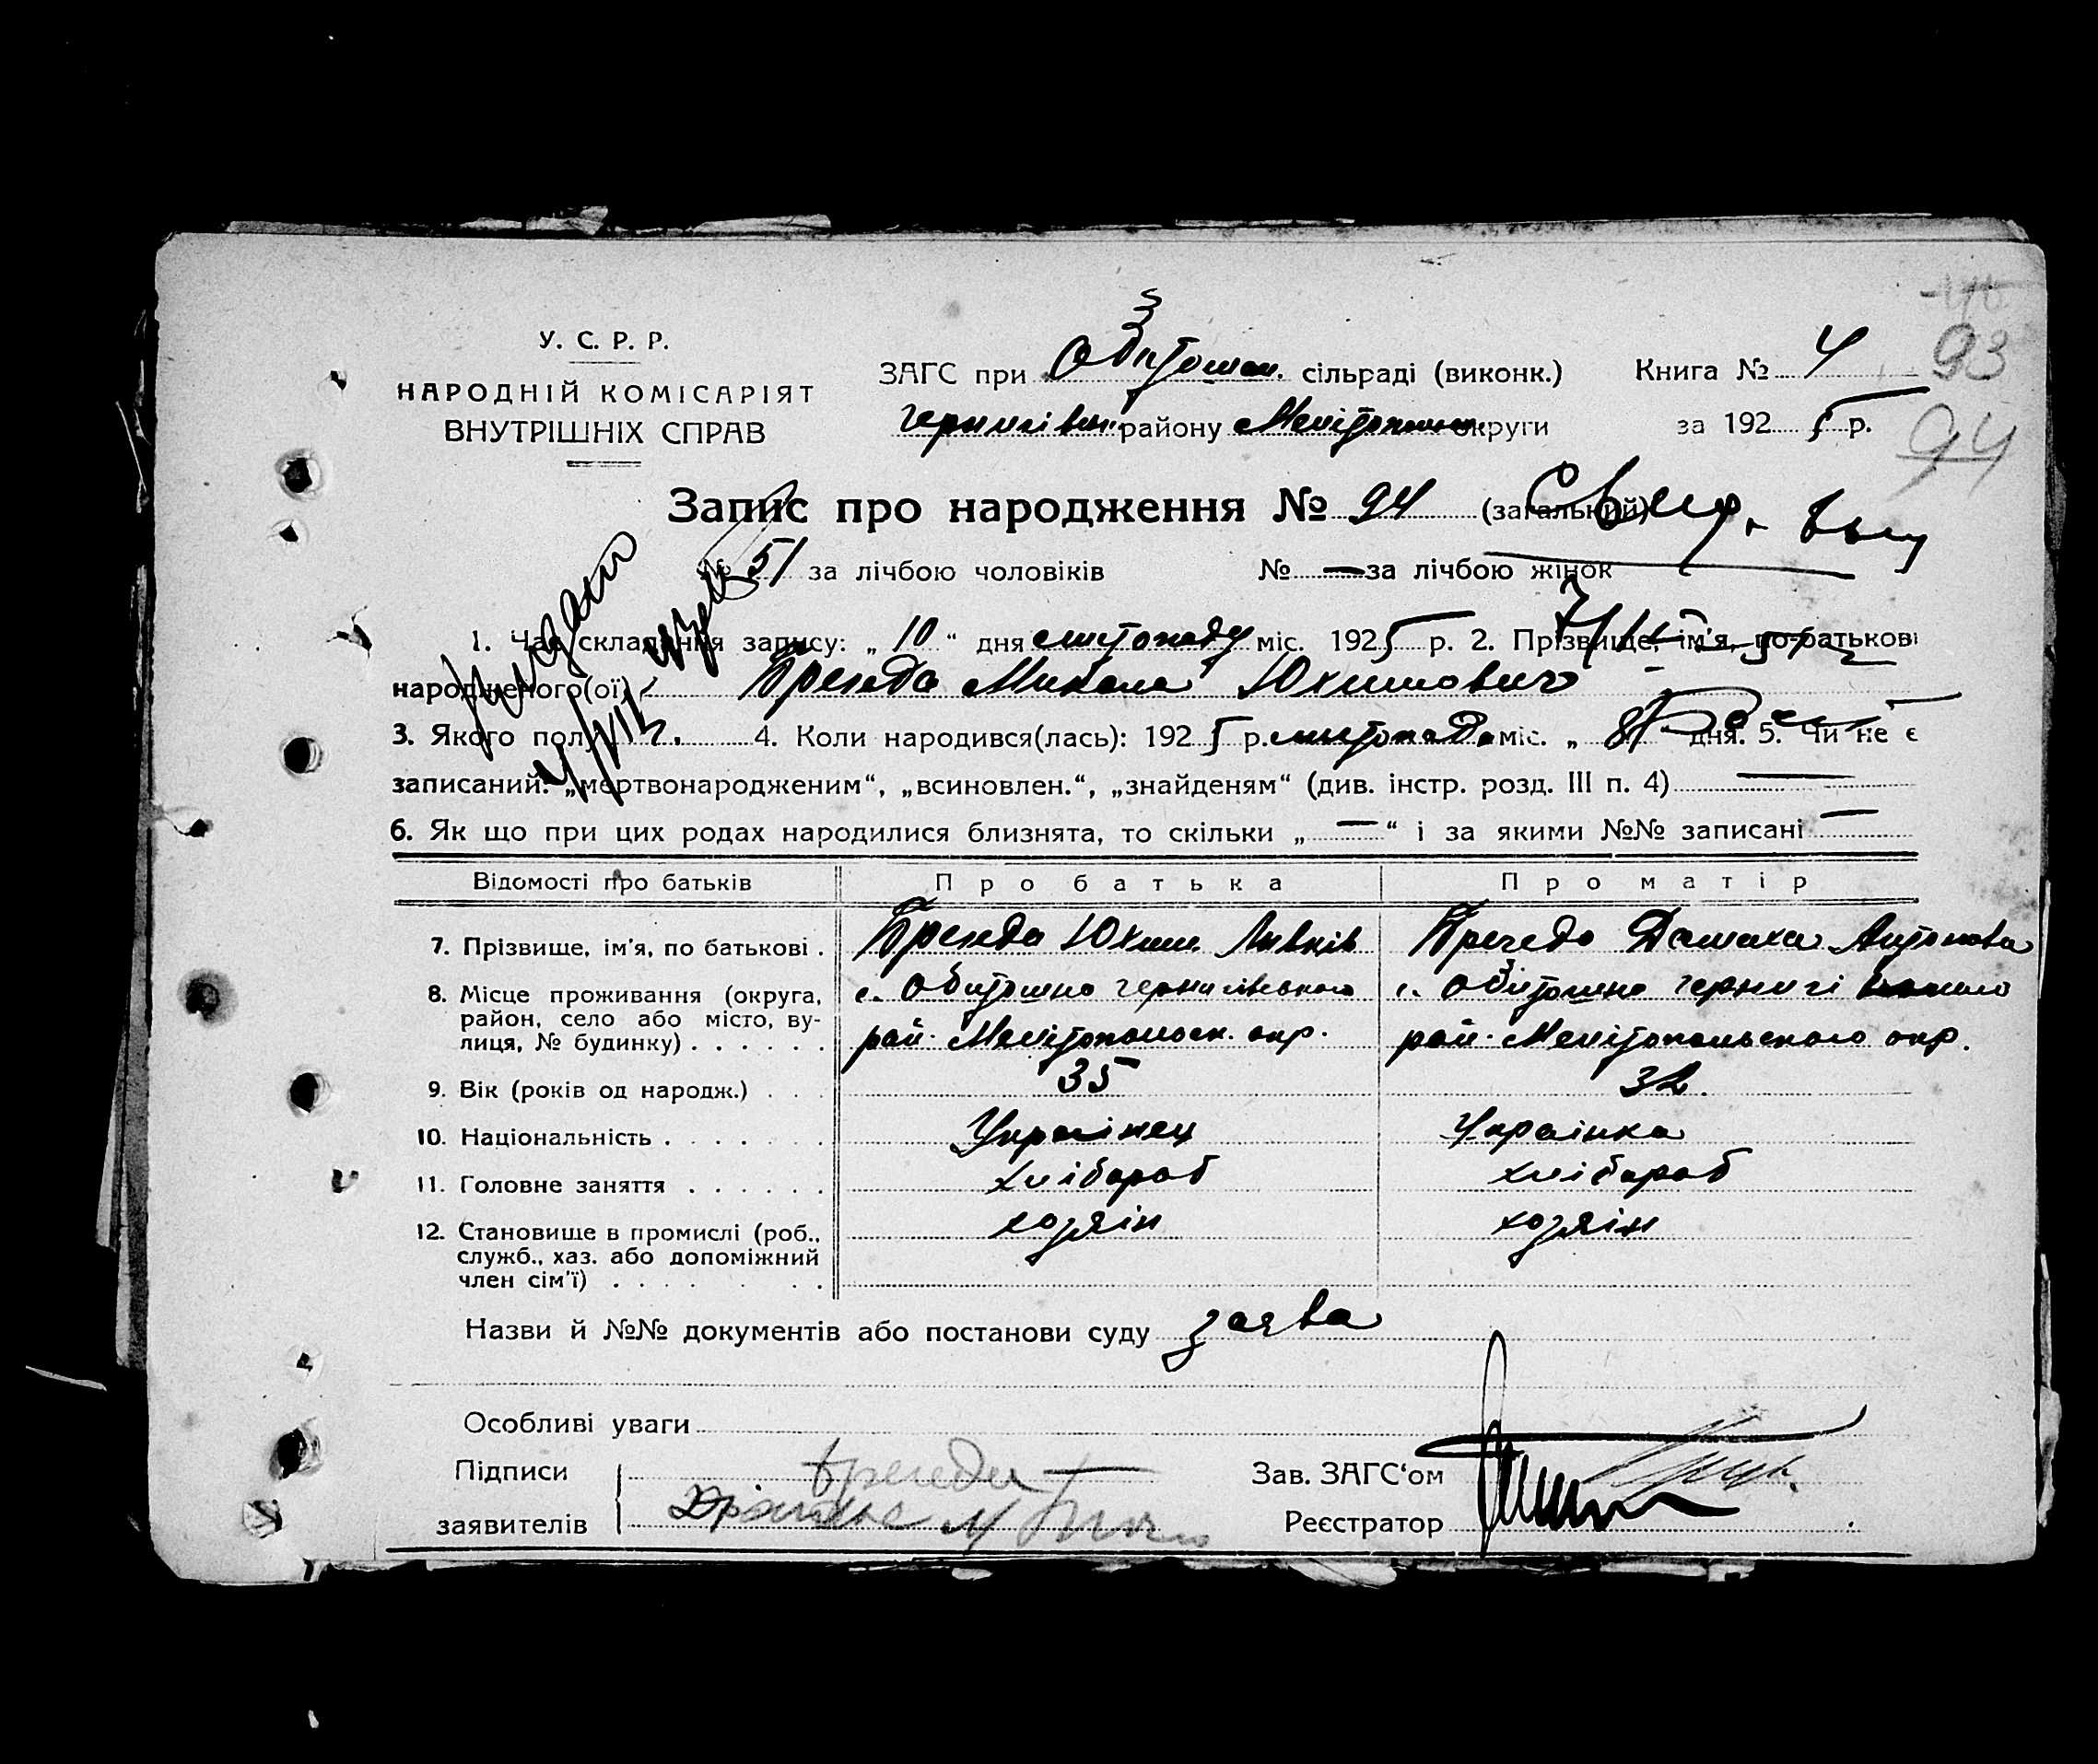 93
У. С. Р. Р.
НАРОДНІЙ КОМІСАРІЯТ
ВНУТРІШНІХ СПРАВ
ЗАГС при Обиточан. сільраді (виконк.) Книга № 4
чернигівськ. району Мелітопольськ. округи за 1925 р.
94
Запис про народження № 94 (загальний)
№ 51 за лічбою чоловіків № — за лічбою жінок
Видано
1. Час складання запису: „ 10 “ дня листопаду міс. 1925 р. 2. Прізвище, ім'я, по батькові
народженого(ої) Миколай Юхимович
3. Якого полу ч. 4. Коли народився(лась): 1925 р. листопада міс. „ 8 дня. 5. Чи не є
записаний: „мертвонародженим“, „всиновлен.“, „знайденям“ (див. інстр. розд. III п. 4) —
6. Як що при цих родах народилися близнята, то скільки „ — “ і за якими №№ записані —
Відомості про батьків Про батька Про матір
7. Прізвище, ім'я, по батькові . Юхим Антонова
8. Місце проживання (округа, с. Обиточно чернигівського с. Обиточно чернигі
район, село або місто, ву-
лиця, № будинку) . . . . . . рай. Мелітопольск. окр. рай. Мелітопольского окр.
9. Вік (років од народж.) . . . 35 32.
10. Національність . . . . . . . Українец Українка
11. Головне заняття . . . . . . хлібороб хлібороб
12. Становище в промислі (роб., хозяін хозяін
служб., хаз. або допоміжний
член сім'ї) . . . . . . . .
Назви й №№ документів або постанови суду заява
Особливі уваги
Підписи Зав. ЗАГС‘ом
заявителів Реєстратор